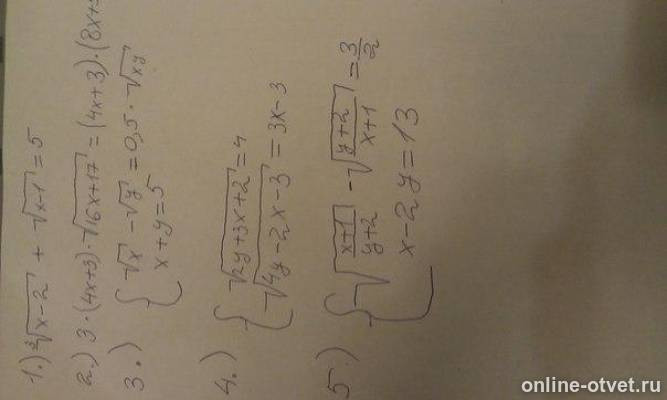 1.) ∛(x-2) + √(x-1) = 5
2.) 3·(4x+3)·√(16x+17) = (4x+3)·(8x+
3.) { √x - √y = 0,5·√xy
x+y=5
4.) { √(2y+3x+2) = 4
√(4y-2x-3) = 3x-3
5.) { √((x+1)/(y+2)) - √((y+2)/(x+1)) = 3/2
x-2y=13
online-otvet.ru